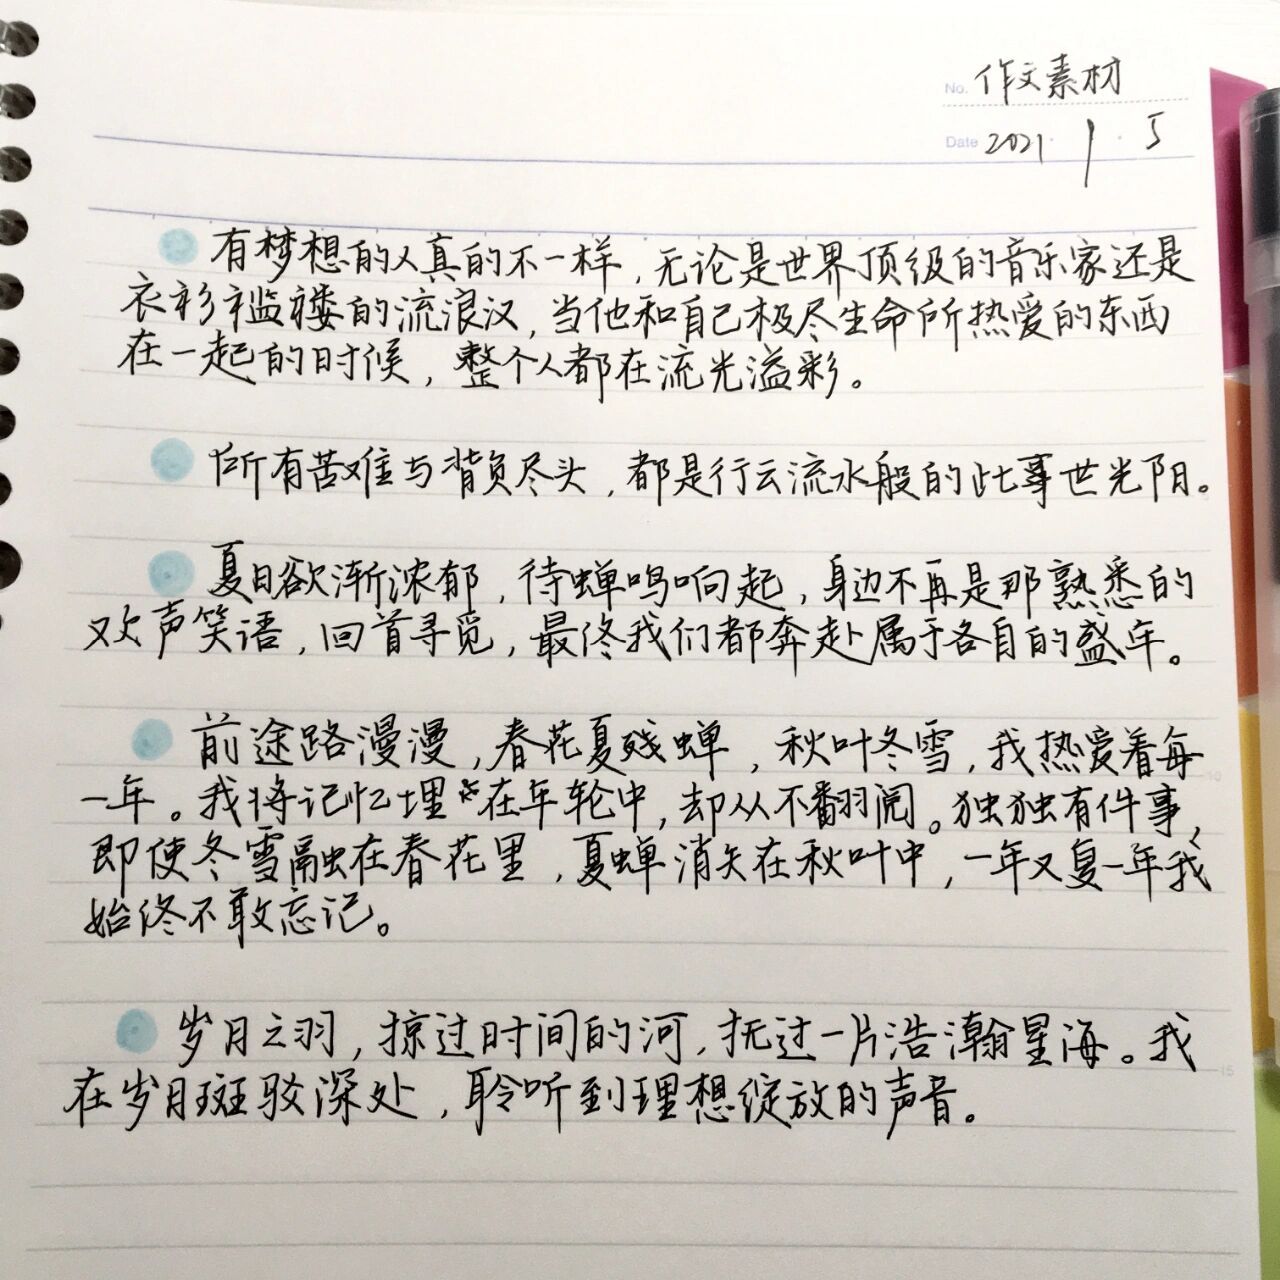 No. 作文素材
Date 2021 1 5
有梦想的人真的不一样,无论是世界顶级的音乐家还是
衣衫褴褛的流浪汉,当他和自己极尽生命所热爱的东西
在一起的时候,整个人都在流光溢彩。
所有苦难与背负尽头,都是行云流水般的此事世光阴。
夏日欲渐浓郁,待蝉鸣响起,身边不再是那熟悉的
欢声笑语,回首寻觅,最终我们都奔赴属于各自的盛年。
前途路漫漫,春花夏残蝉,秋叶冬雪,我热爱着每
一年。我将记忆埋在年轮中,却从不翻阅。独独有件事,
即使冬雪融在春花里,夏蝉消失在秋叶中,一年又复一年我
始终不敢忘记。
岁月之羽,掠过时间的河,抚过一片浩瀚星海。我
在岁月斑驳深处,聆听到理想绽放的声音。
10
15